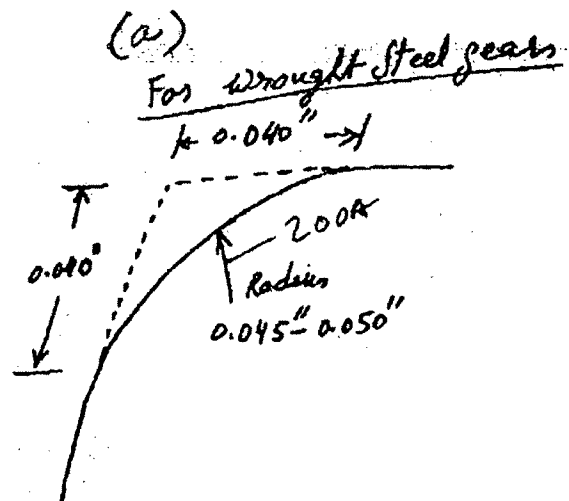 (a)
For wrought Steel gears
0.040"
0.040"
200A
Radius
0.045"-0.050"